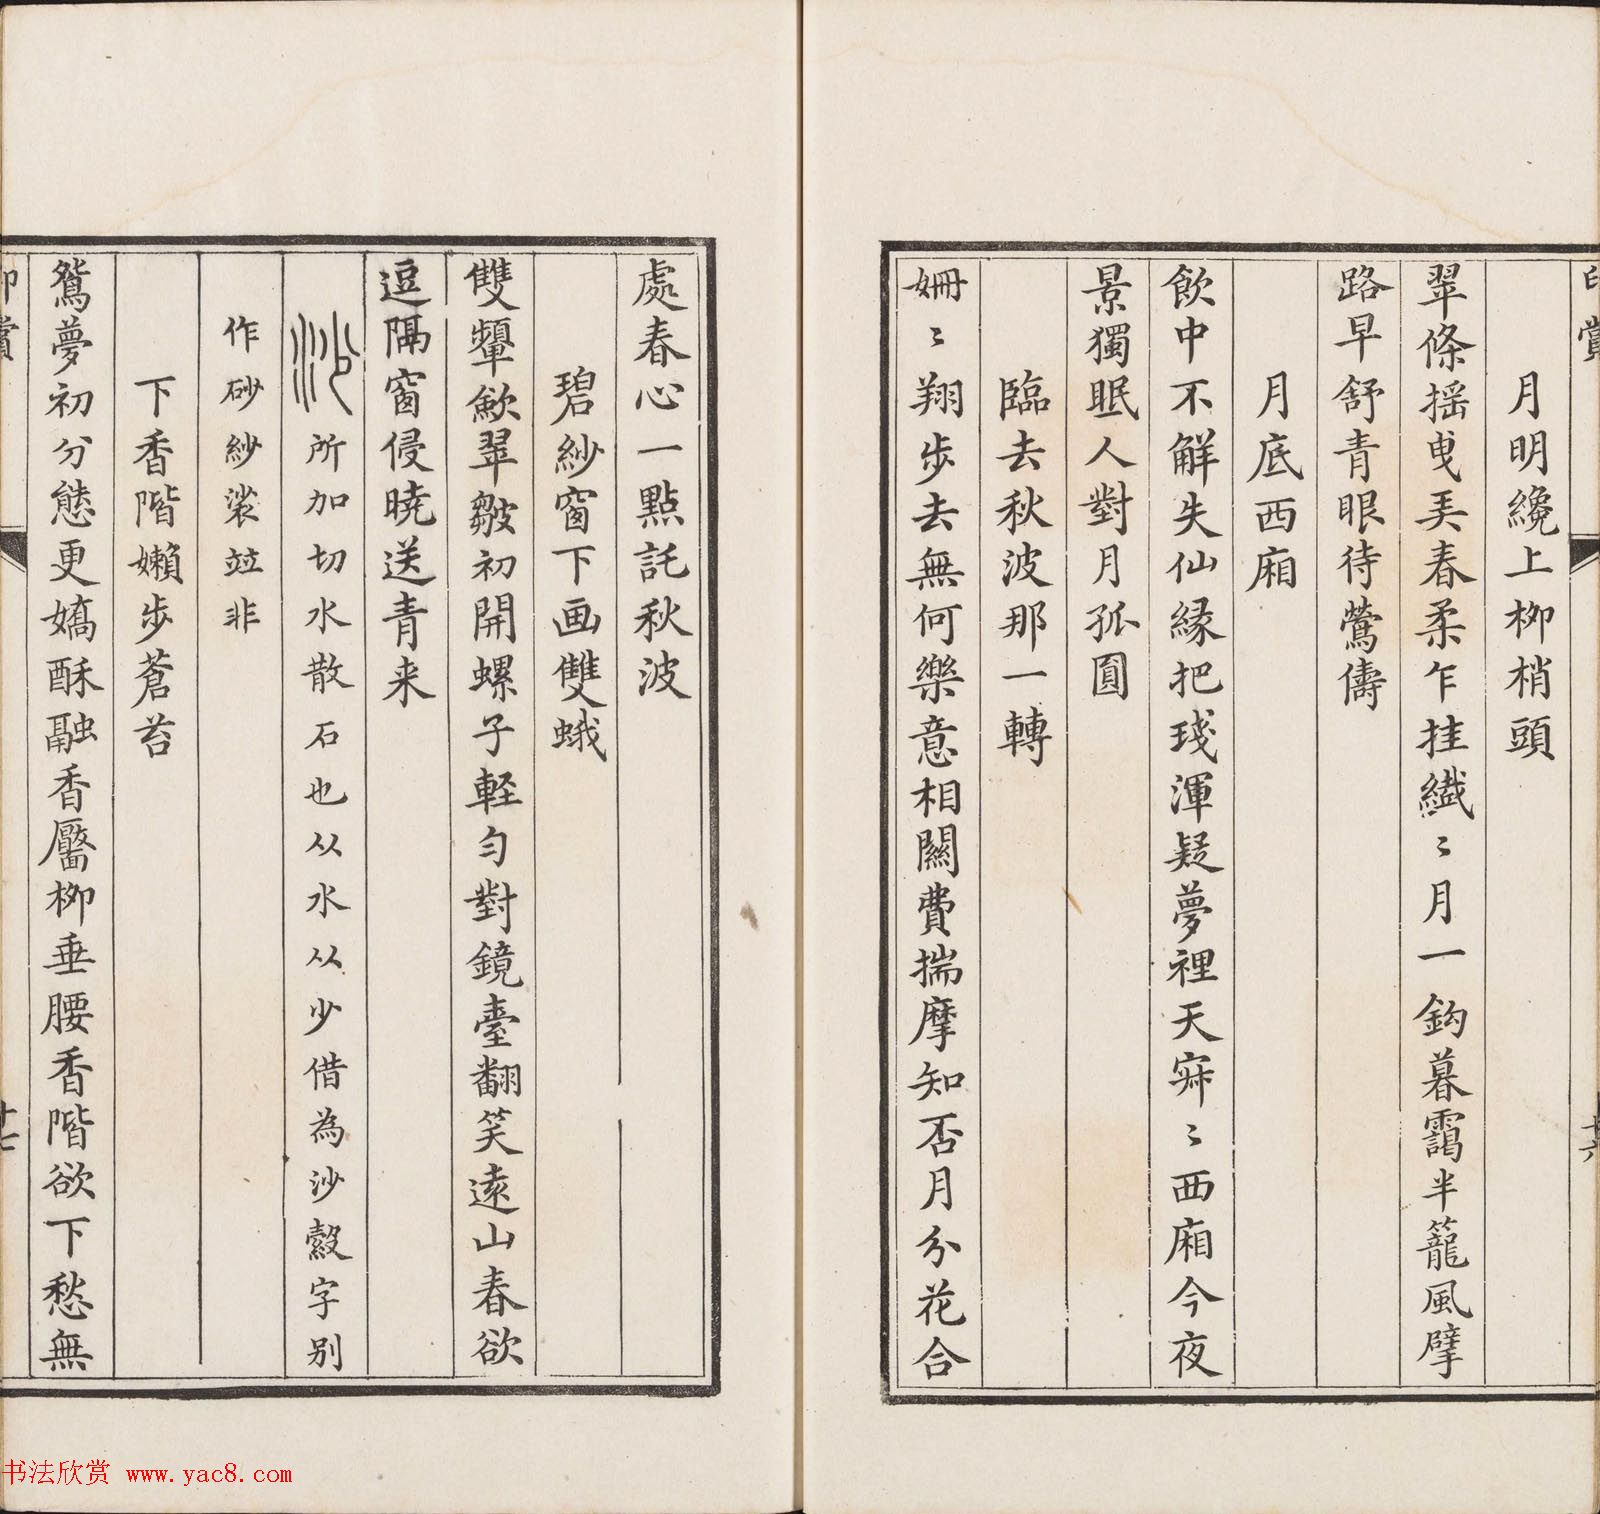 印賞
十六
月明纔上柳梢頭
翠條搖曳弄春柔乍挂纖〻月一鈎暮靄半籠風擘
路早舒青眼待鶯儔
月底西廂
飲中不解失仙緣把琖渾疑夢裡天寂〻西廂今夜
景獨眠人對月孤圓
臨去秋波那一轉
姍〻翔步去無何樂意相關費揣摩知否月分花合
處春心一點託秋波
碧紗窗下画雙蛾
雙顰歛翠皺初開螺子輕勻對鏡臺翻笑遠山春欲
逗隔窗侵曉送青来
沙所加切水散石也从水从少借為沙縠字別
作砂紗裟竝非
下香階嬾步蒼苔
鴛夢初分態更嬌酥融香靨柳垂腰香階欲下愁無
印賞
十七
书法欣赏 www.yac8.com